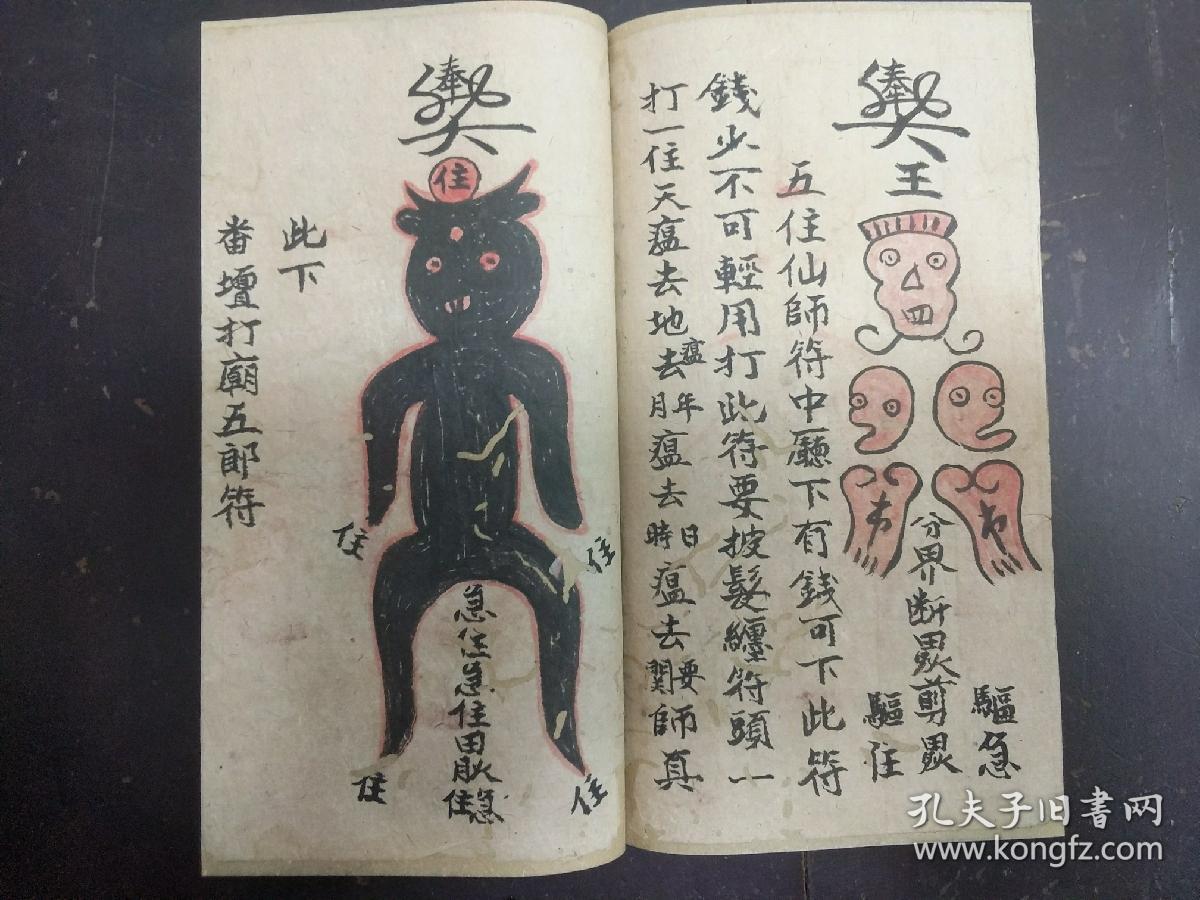 奉
王
驅急
分界断
剪
驅住
五住仙師符中廳下有錢可下此符
錢少不可輕用打此符要披髮纏符頭一
打一住天瘟去地瘟去年月瘟去日時瘟去要関師真
奉
住
住
住
住
住
急住急住
住急
此下
畨壇打廟五郎符
孔夫子旧书网
www.kongfz.com